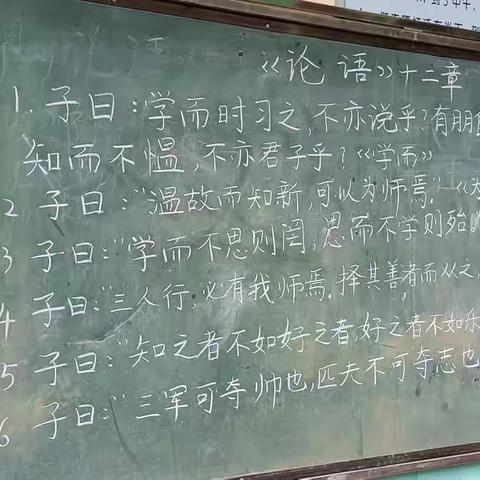 《论语》十二章
1. 子曰:学而时习之,不亦说乎?有朋
知而不愠,不亦君子乎?《学而》
2 子曰:"温故而知新,可以为师焉."《为
3 子曰:"学而不思则罔,思而不学则殆
4 子曰:"三人行,必有我师焉.择其善者而从之,
5 子曰:"知之者不如好之者,好之者不如乐
6 子曰:"三军可夺帅也,匹夫不可夺志也